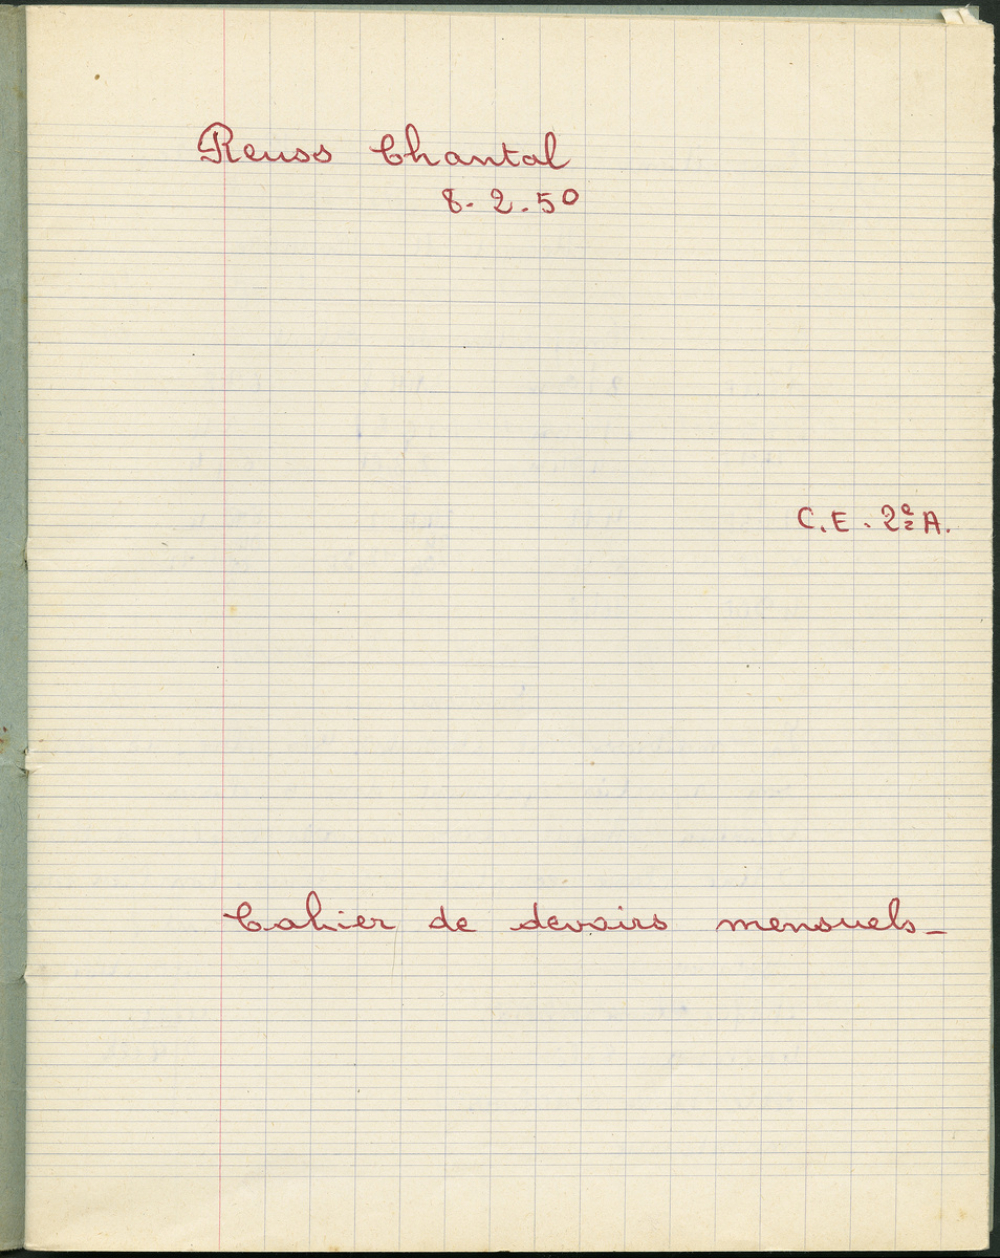 Reuss Chantal
8.2.50
C.E. 2e A.
Cahier de devoirs mensuels_